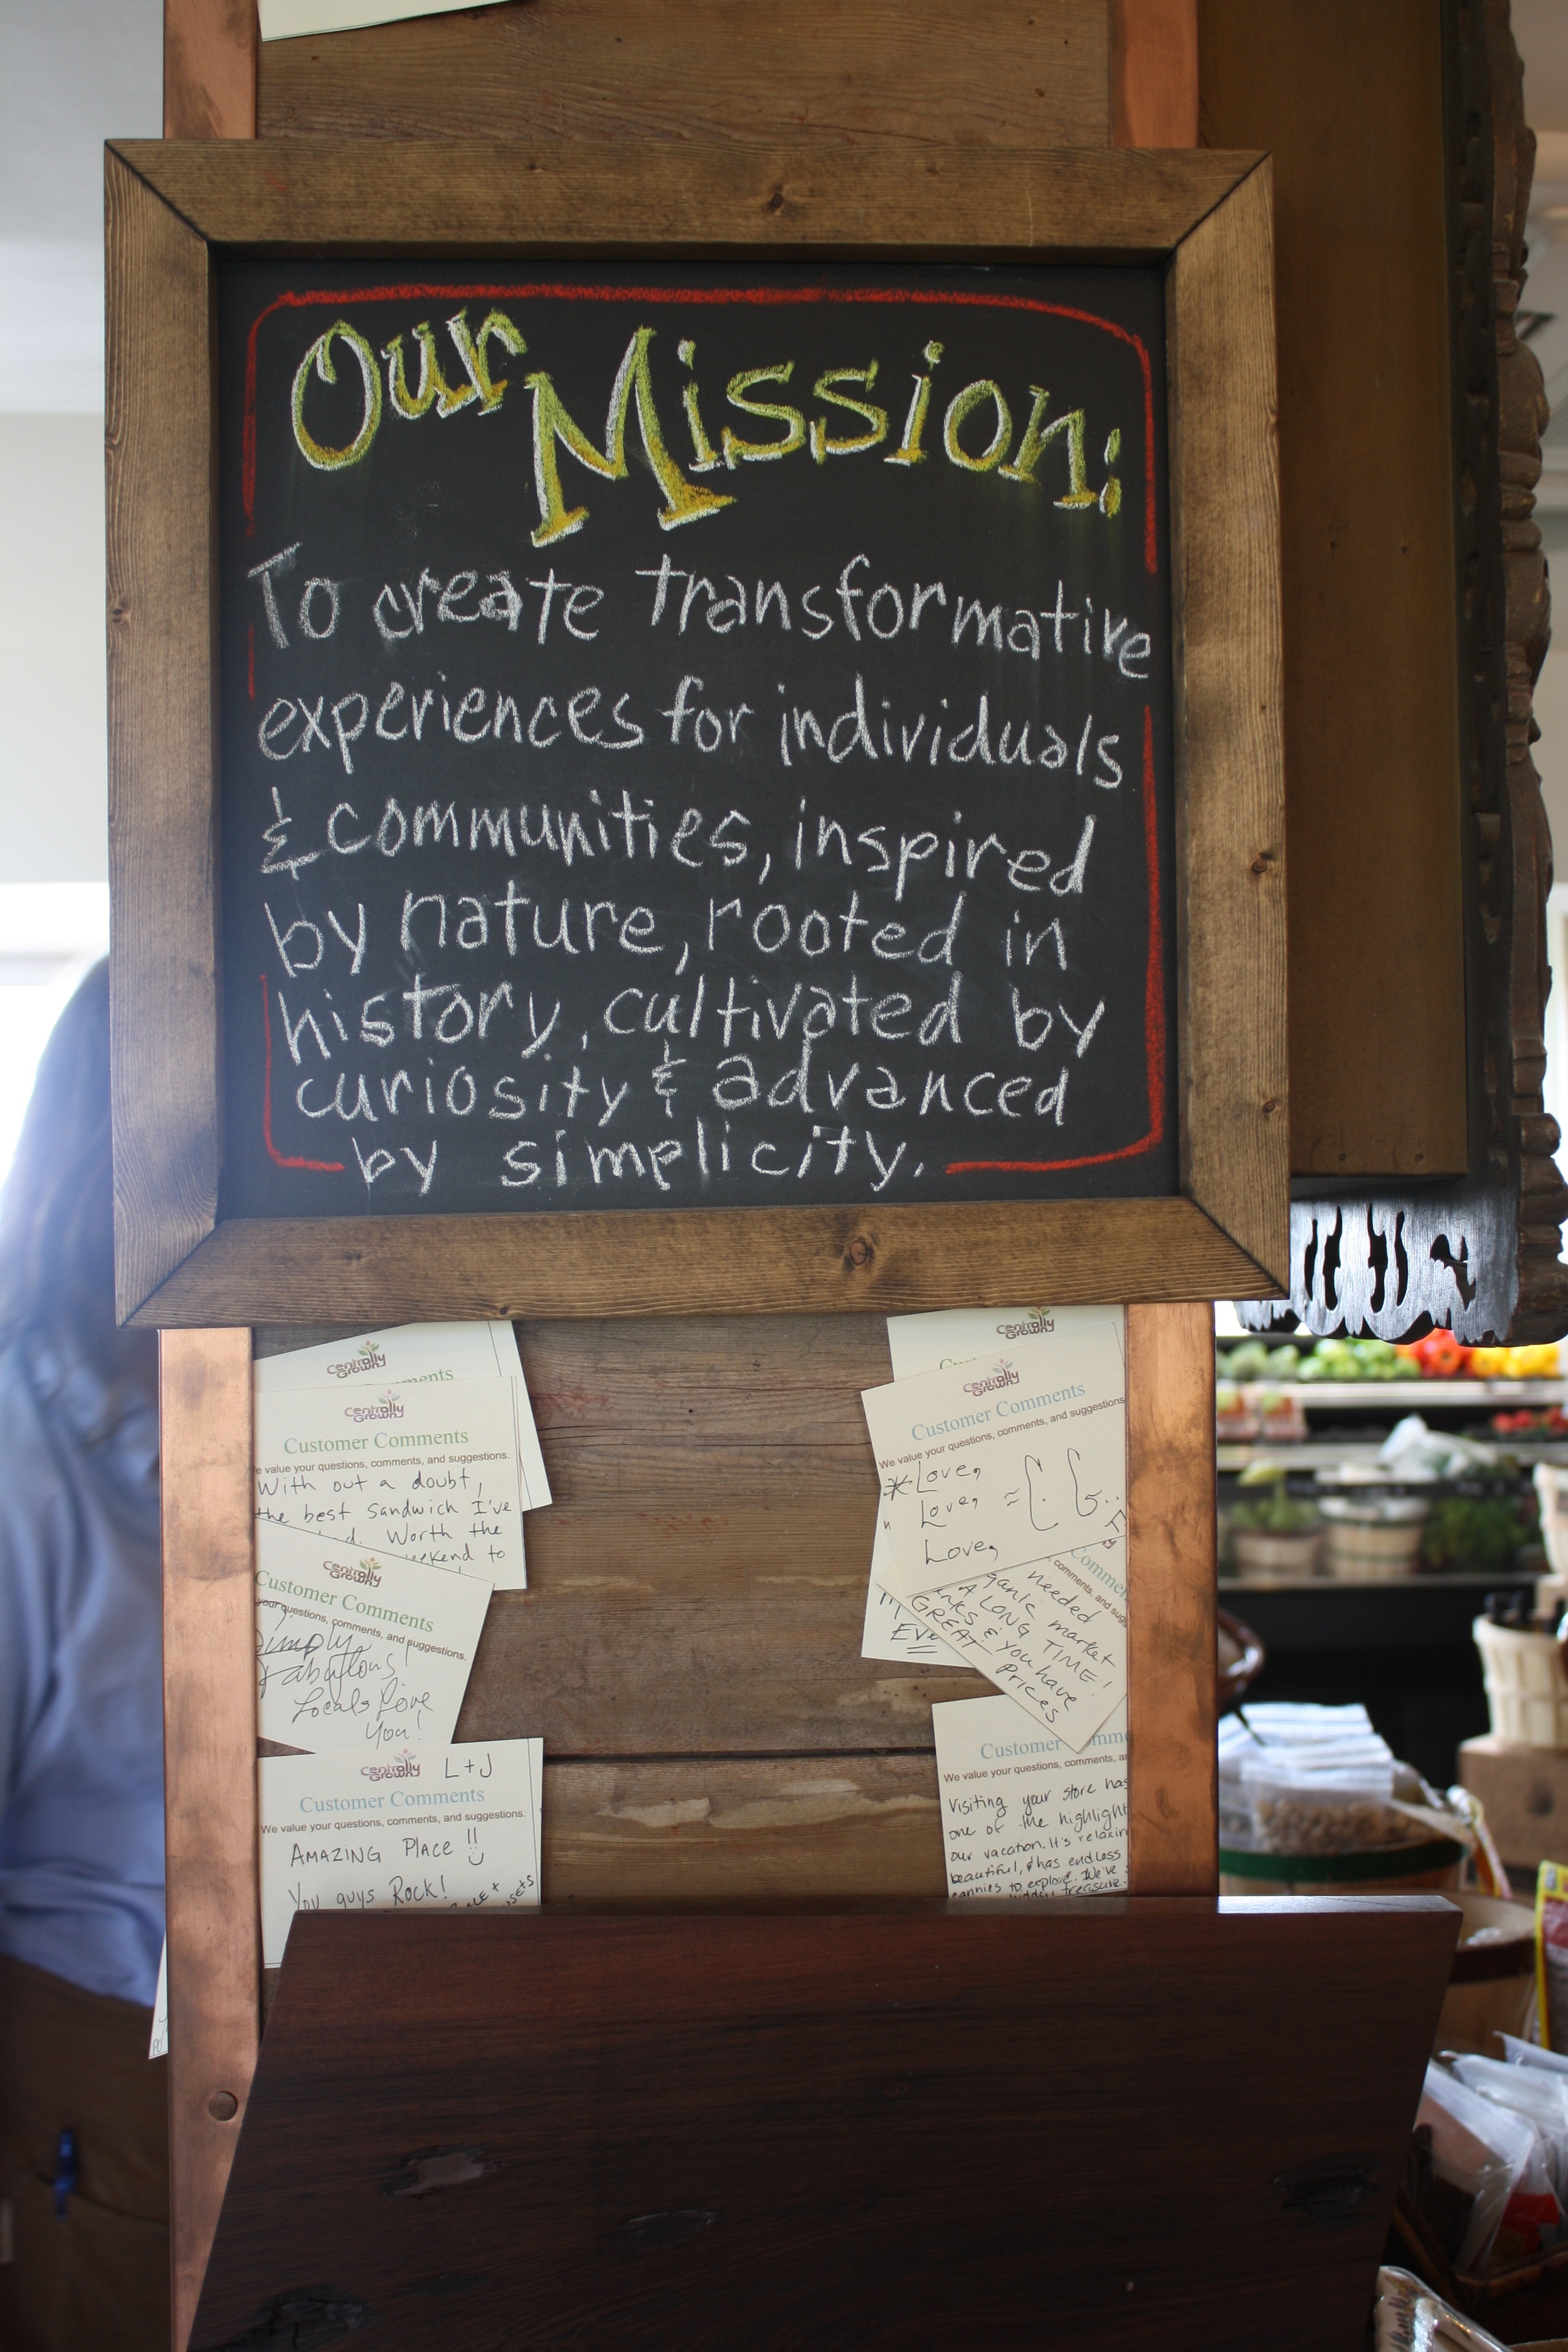 Our Mission:
To create transformative
experiences for individuals
& communities, inspired
by nature, rooted in
history, cultivated by
curiosity & advanced
by simplicity.
Centrally
Grown
Centrally
Grown
Customer Comments
We value your questions, comments, and suggestions.
With out a doubt,
the best sandwich I've
Worth the
to
Centrally
Grown
Customer Comments
your questions, comments, and suggestions.
Simply
Fabulous!
Locals Love
You!
Centrally
Grown
L+J
Customer Comments
We value your questions, comments, and suggestions.
AMAZING PLACE !!
You guys Rock!
Centrally
Grown
Centrally
Grown
Customer Comments
We value your questions, comments, and suggestions
Love,
Love,
Love,
comments, and
needed
market
A LONG TIME!
& you have
GREAT Prices
Customer
We value your questions, comments,
Visiting your store has
one of the highlight
our vacation. It's
beautiful, & has endless
to explore. We've
treasure.